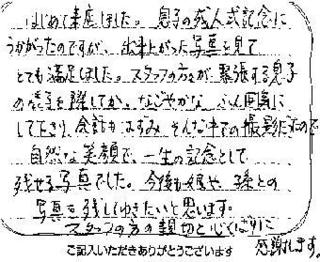 はじめて来店しました。息子の成人式記念に
うかがったのですが、出来上がった写真を見て
とても満足しました。スタッフの方々が緊張する息子
の様子を察してか、なごやかな ふん囲気に
して下さり、会話もはずみ そんな中での撮影だったので
自然な笑顔で、一生の記念として
残せる写真でした。今後も娘や孫との
写真も残してゆきたいと思います。
スタッフの方の親切と心くばりに
感謝します。
ご記入いただきありがとうございます